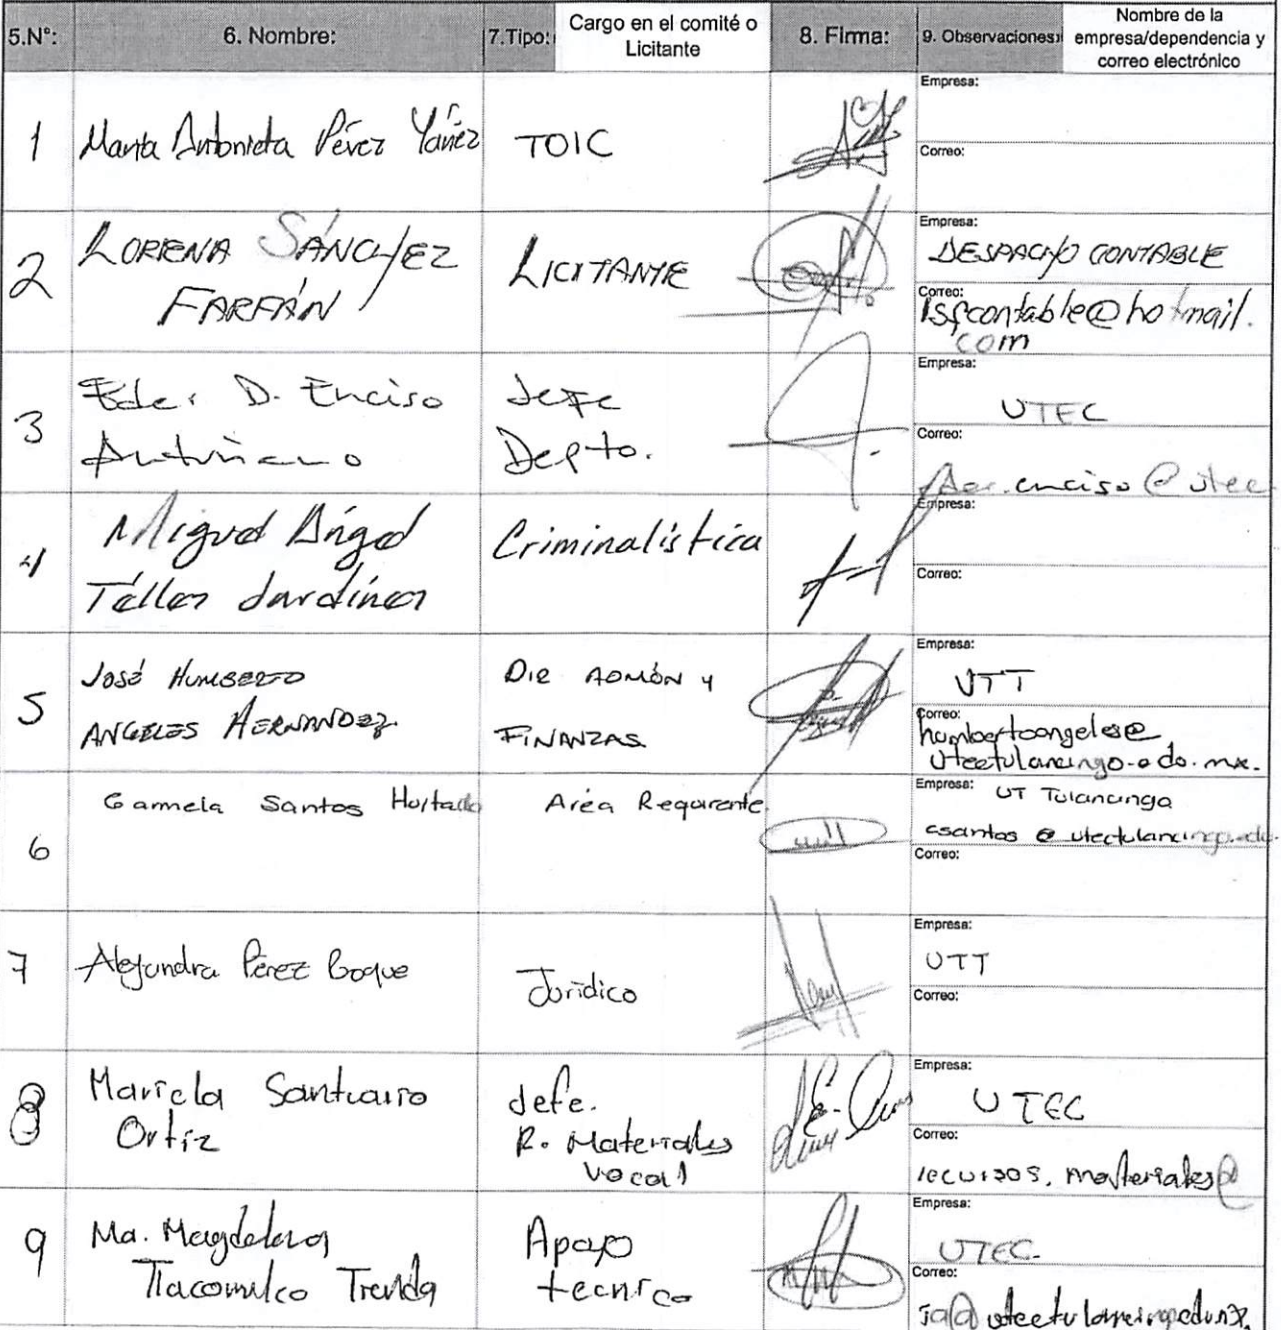 5.N°:
6. Nombre:
7.Tipo:
Cargo en el comité o
Licitante
8. Firma:
9. Observaciones:
Nombre de la
empresa/dependencia y
correo electrónico
1
Maria Antonieta Pérez Yáñez
TOIC
Empresa:
Correo:
2
LORENA SÁNCHEZ
FARFÁN
LICITANTE
Empresa:
DESPACHO CONTABLE
Correo:
lsfcontable@hotmail.
com
3
Eder D. Enciso
Antuñano
Jefe
Depto.
Empresa:
UTEC
Correo:
enciso@utec
4
Miguel Ángel
Téllez Jardínez
Criminalística
Empresa:
Correo:
5
JOSÉ HUMBERTO
ANGELES HERNANDEZ
DIR ADMÓN Y
FINANZAS
Empresa:
UTT
Correo:
humbertoangeles@
utectulancingo.edo.mx.
6
Carmela Santos Hurtado
Area Requirente
Empresa:
UT Tulancingo
csantos@utectulancingo.edu.
Correo:
7
Alejandra Pérez Roque
Jurídico
Empresa:
UTT
Correo:
8
Mariela Santuario
Ortiz
Jefe.
R. Materiales
vocal
Empresa:
UTEC
Correo:
recursos.materiales@
9
Ma. Magdalena
Tlacomulco
Apoyo
tecnico
Empresa:
UTEC
Correo: